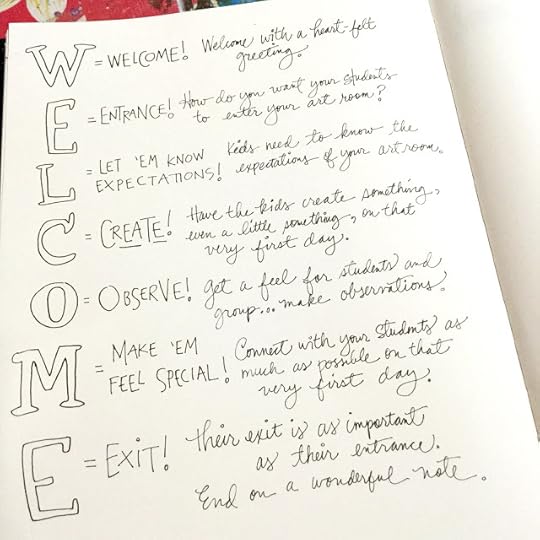 W = WELCOME! Welcome with a heart-felt
greeting.
E = ENTRANCE! How do you want your students
to enter your art room?
L = LET 'EM KNOW Kids need to know the
EXPECTATIONS! expectations of your art room.
C = CREATE! Have the kids create something,
even a little something, on that
very first day.
O = OBSERVE! Get a feel for students and
group... make observations.
M = MAKE 'EM Connect with your students as
FEEL SPECIAL! much as possible on that
very first day.
E = EXIT! Their exit is as important
as their entrance.
End on a wonderful note.